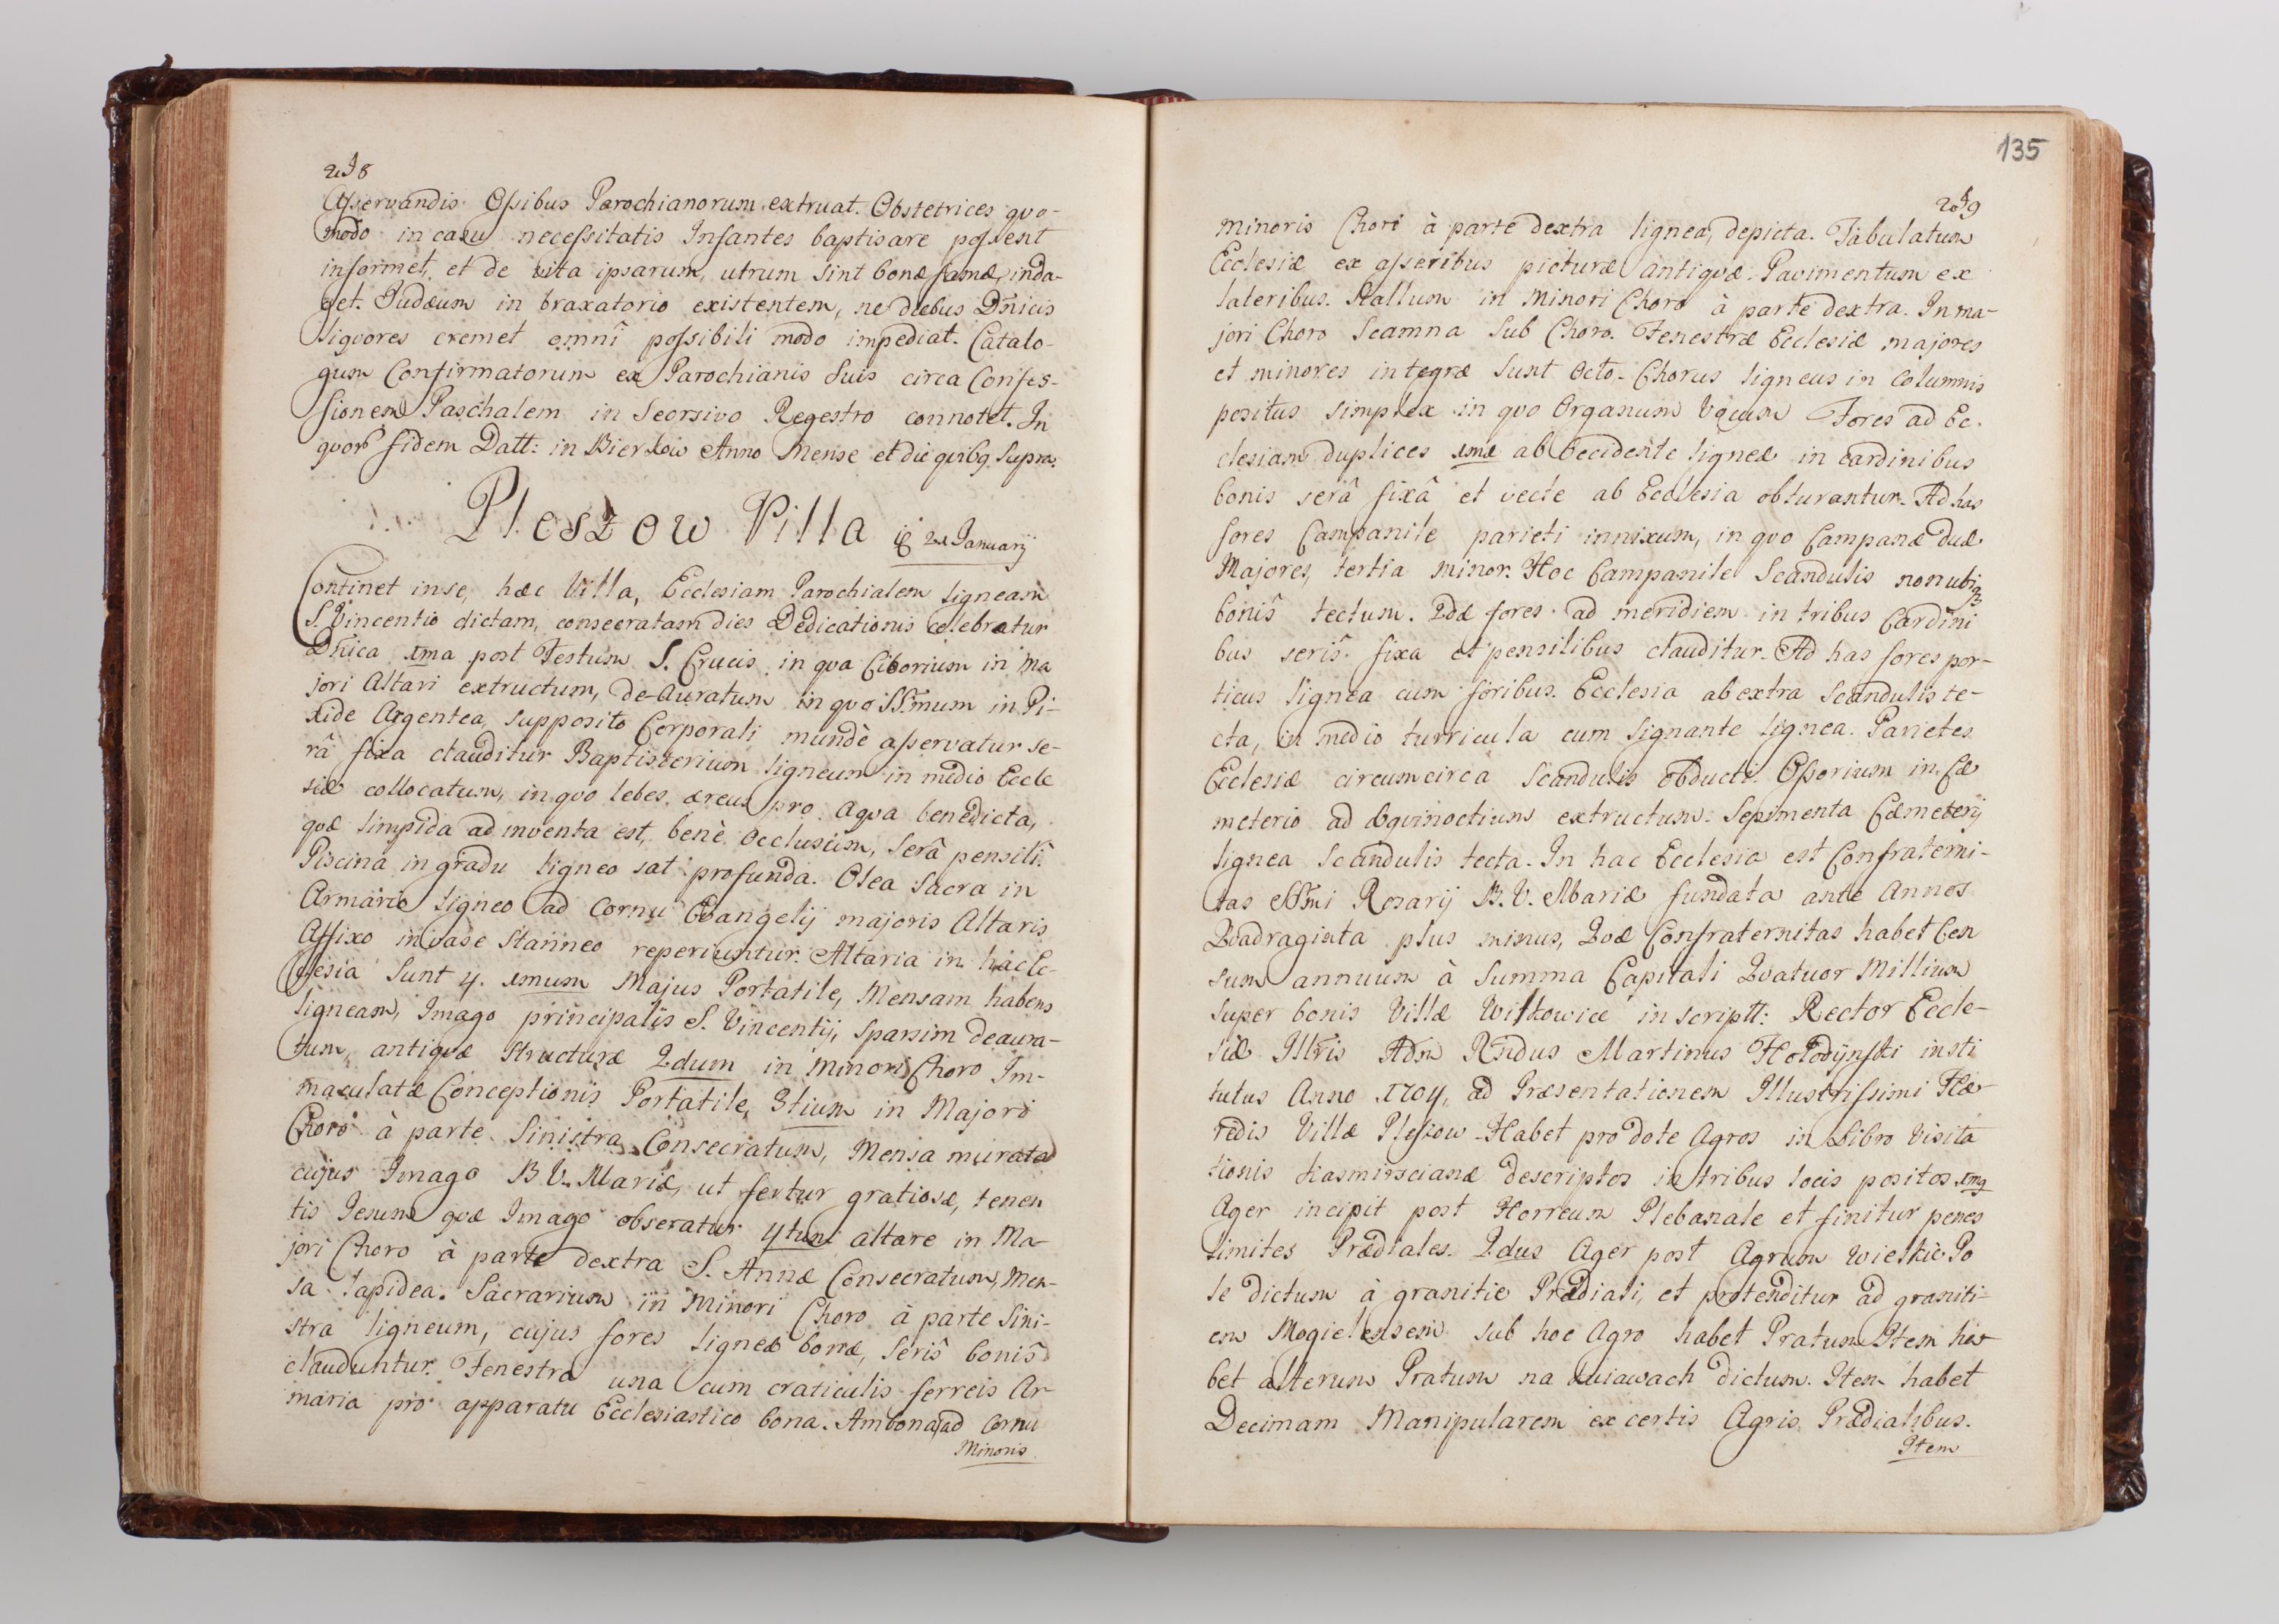 218
Asservandis Ossibus Parochianorum extruat. Obstetrices quo-
modo in casu necessitatis Infantes baptisare possent
informet, et de vita ipsarum, utrum sint bonæ famæ, inda-
get. Judæum in braxatorio existentem, ne diebus Dnicis
liquores cremet omni possibili modo impediat. Catalo-
gum Confirmatorum ex Parochianis suis circa Confes-
sionem Paschalem in Seorsivo Regestro connotet. In
quor fidem Datt: in Bierkow Anno Mense et die quibq supra.
Pleszow Villa 21 Januarij
Continet in se, hæc Villa, Ecclesiam Parochialem ligneam
S. Vincentio dictam, consecratam dies Dedicationis celebratur
Dnica 1ma post Festum S. Crucis in qua Ciborium in Ma
jori Altari extructum, de-Auratum in quo SSmum in Pi-
xide Argentea, supposito Corporali mundè asservatur se-
râ fixa clauditur Baptisterium ligneum in medio Eccle
siæ collocatum, in quo lebes æreus pro Aqua benedicta,
quæ limpida adinventa est, benè occlusum, serâ pensili.
Piscina in gradu ligneo sat profunda. Olea Sacra in
Armario ligneo ad Cornu Evangelij majoris Altaris
Affixo in vase Stanneo reperiuntur. Altaria in hac Ec-
clesia sunt 4. 1mum Majus Portatile, Mensam habens
ligneam, Imago principalis S. Vincentij, sparsim deaura-
tum, antiquæ structuræ 2dum in Minori Choro Im-
maculatæ Conceptionis Portatile, 3tium in Majori
Choro à parte Sinistra Consecratum, Mensa murata
cujus Imago B. V. Mariæ, ut fertur gratiosæ, tenen
tis Jesum quæ Imago obseratur 4tum altare in Ma-
jori Choro à parte dextra S. Annæ Consecratum, Men-
sa Lapidea. Sacrarium in Minori Choro à parte Sini-
stra ligneum, cujus fores ligneæ bonæ, seris bonis
clauduntur. Fenestra una cum craticulis ferreis Ar-
maria pro apparatu Ecclesiastico bona. Ambona ad Cornu
Minoris
135
219
minoris Chori à parte dextra lignea, depicta. Tabulatum
Ecclesiæ ex asseribus picturæ antiquæ. Pavimentum ex
lateribus. Stallum in Minori Choro à parte dextra. In ma-
jori Choro Scamna sub Choro. Fenestræ Ecclesiæ majores
et minores integræ sunt octo. Chorus ligneus in Columnis
positus simplex in quo Organum Fores ad Ec-
clesiam duplices 1mæ ab Occidente ligneæ in cardinibus
bonis serâ fixâ et vecte ab Ecclesia obturantur. Ad has
fores Campanile parieti innixum, in quo Campanæ duæ
Majores, tertia minor. Hoc Campanile Scandulis non ubiq
bonis tectum. 2dæ fores ad meridiem in tribus Cardini
bus seris fixa et pensilibus clauditur. Ad has fores por-
ticus lignea cum foribus. Ecclesia ab extra Scandulis te-
cta, in medio turricula cum signante lignea. Parietes
Ecclesiæ circumcirca Scandulis obducti. Ossorium in Cæ
meterio ad æquinoctium extructum. Sepimenta Cæmeterij
lignea Scandulis tecta. In hac Ecclesia est Confraterni-
tas SSmi Rosarij B. V. Mariæ fundata ante Annos
Quadraginta plus minus, Quæ Confraternitas habet Cen
sum annuum à Summa Capitali Quatuor Millium
super bonis Villæ Witkowice inscriptt: Rector Eccle-
siæ Illris Adm Rndus Martinus Hołodyński insti
tutus Anno 1704, ad Præsentationem Illustrissimi Hæ-
redis Villæ Pleszow. Habet pro dote Agros in Libro Visita
tionis Kasmirscianæ descriptos in tribus locis positos 1mq
Ager incipit post Horreum Plebanale et finitur penes
limites Prædiales. 2dus Ager post Agrum wielkie Po
le dictum à granitie Prædiali, et protenditur ad graniti-
em Mogielensem sub hoc Agro habet Pratum Item ha-
bet alterum Pratum na dictum. Item habet
Decimam Manipularem ex certis Agris Prædialibus.
Item